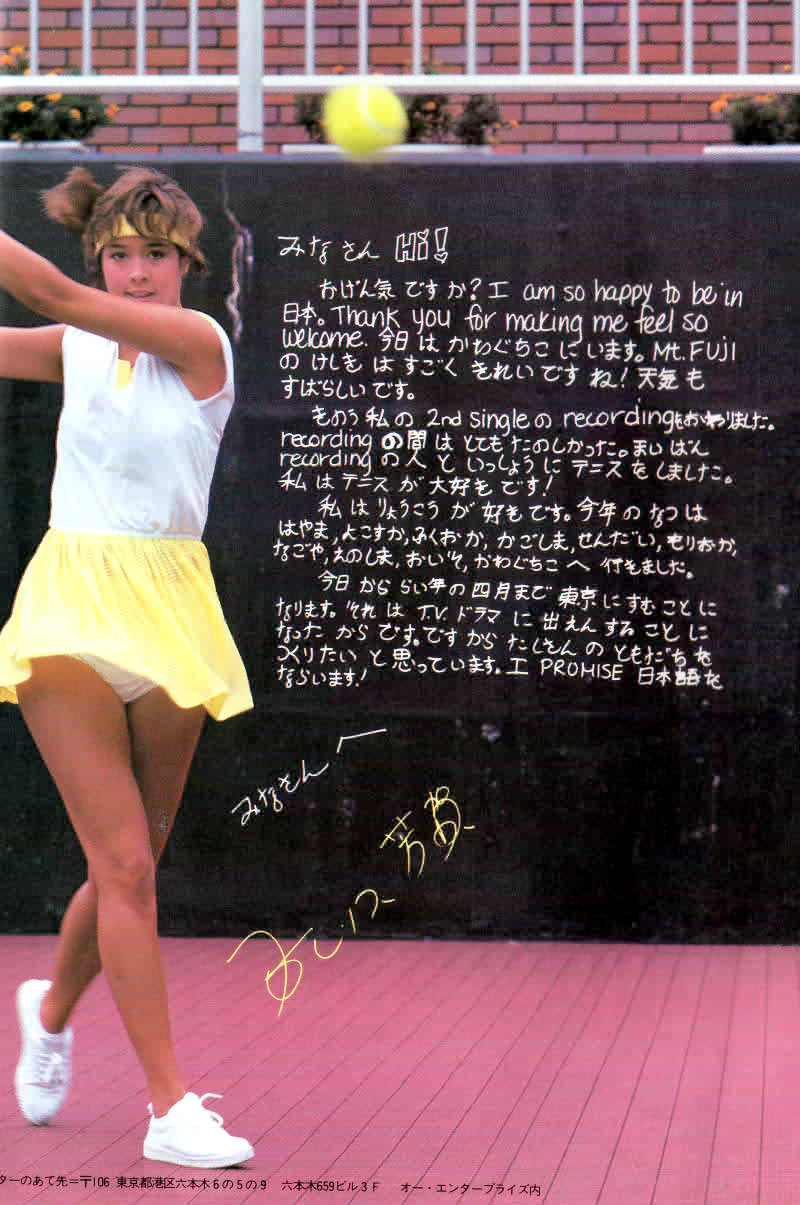 みなさん Hi!
おげん気ですか? I am so happy to be in
日本。Thank you for making me feel so
welcome. 今日は かわぐちこ に います。Mt. FUJI
の けしき は すごく きれい です ね! 天気 も
すばらしい です。
きのう 私 の 2nd single の recording をおわりました。
recording の 間 は とても たのしかった。まいばん
recording の 人 と いっしょうに テニス を しました。
私 は テニス が 大好き です!
私 は りょうこう が 好き です。今年 の なつ は
はやま, よこすか, ふくおか, かごしま, せんだい, もりおか,
なごや, えのしま, おいそ, かわぐちこ へ 行きました。
今日 から らい年 の 四月 まで 東京 に すむ こと に
なります。それ は T.V. ドラマ に 出えん する こと に
なった から です。ですから たくさん の ともだち を
つくりたい と 思っています。I PROMISE 日本語 を
ならいます!
みなさんへ
芳賀
ターのあて先=〒106 東京都港区六本木6の5の9 六本木659ビル3F オー・エンタープライズ内